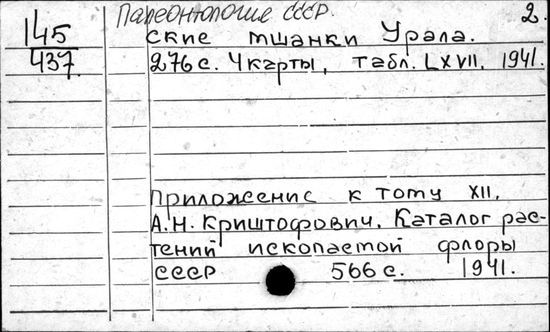 Палеонтология СССР. 2.
145
437.
ские мшанки Урала.
276 с. 4 карты, табл. LXVII. 1941.
Приложение к тому XII.
А.Н. Криштофович. Каталог рас-
тений ископаемой флоры
СССР 566 с. 1941.